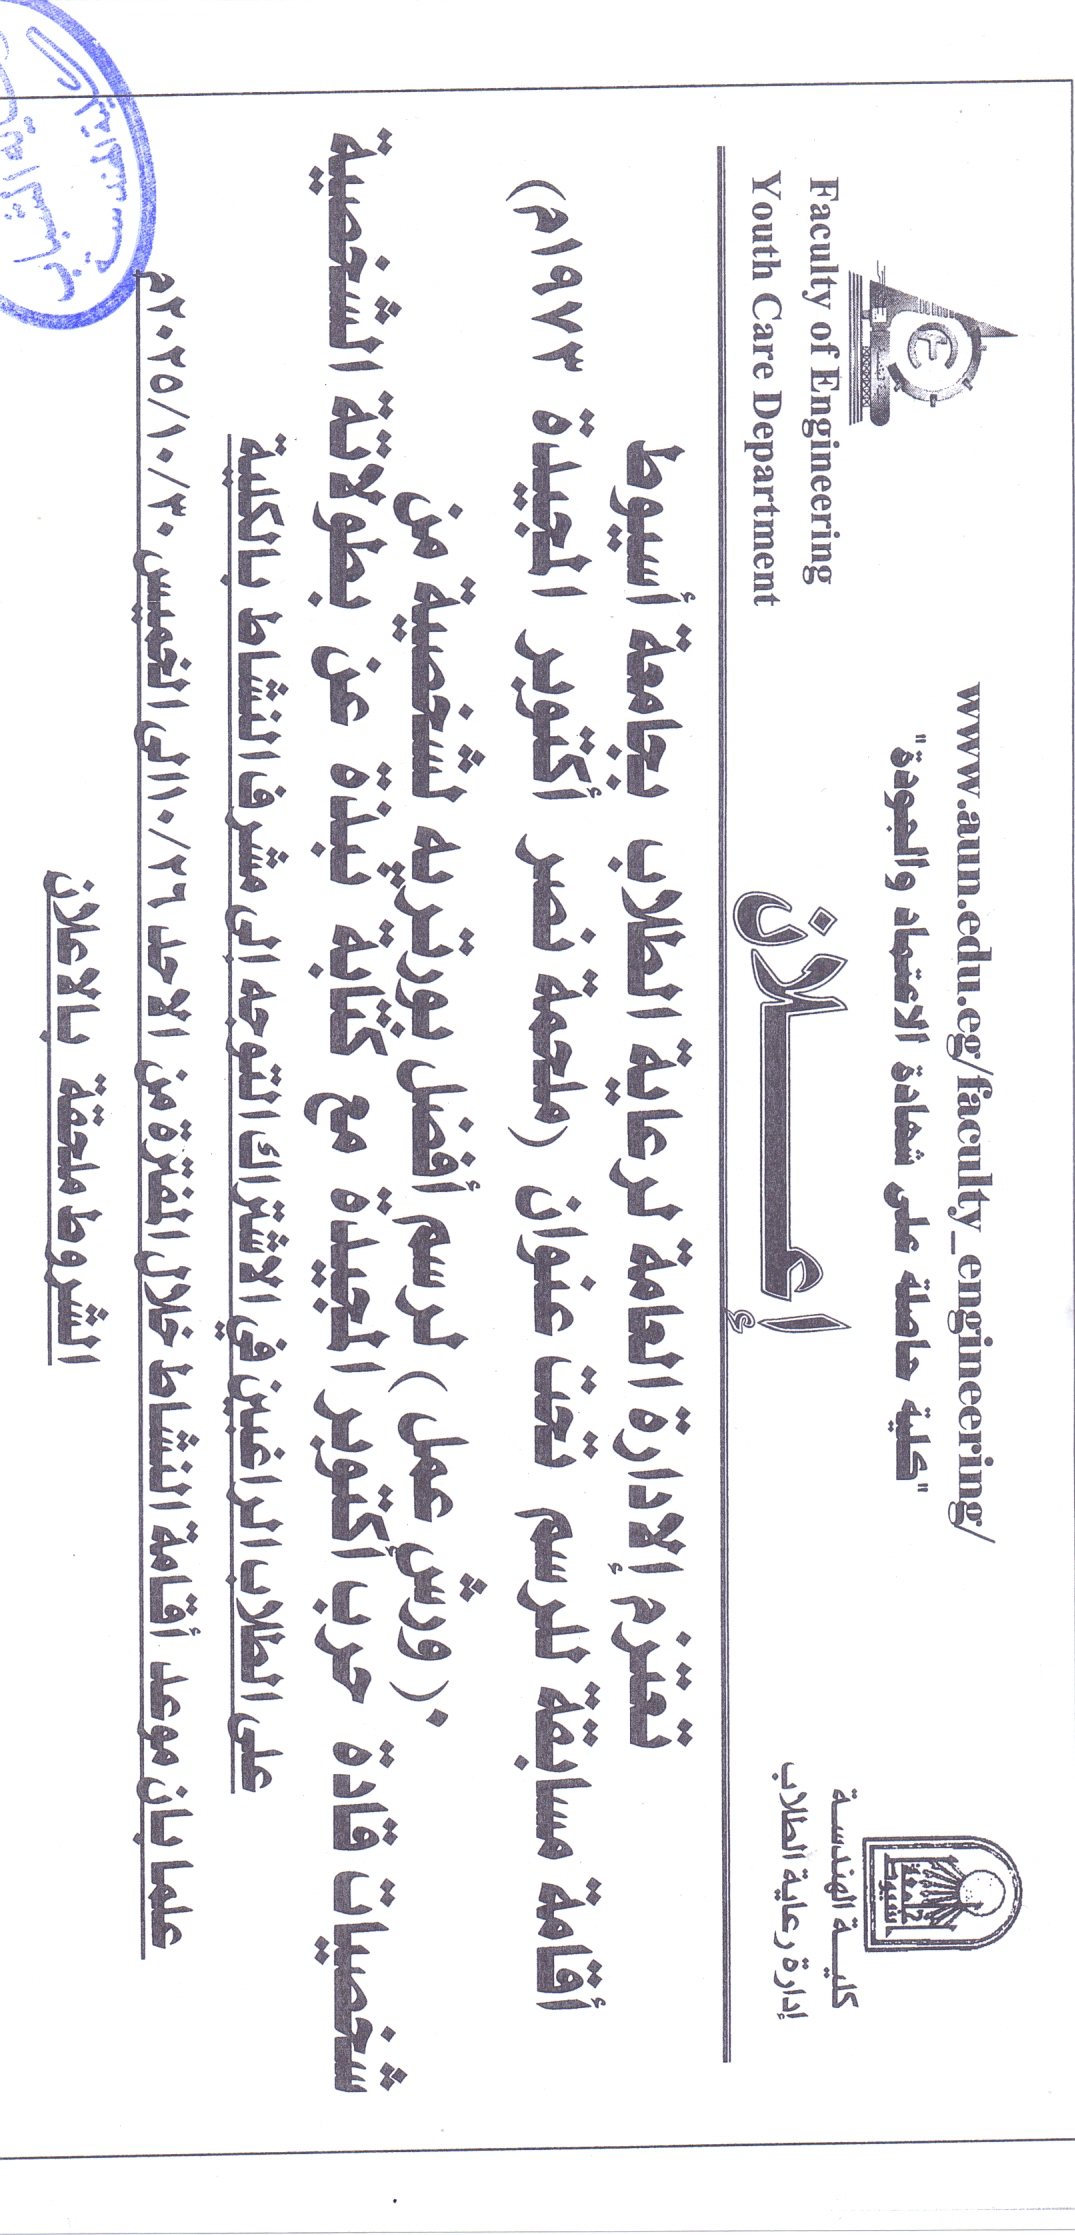 www.aun.edu.eg/faculty_engineering/
"كلية حاصلة على شهادة الاعتماد والجودة"
جامعة أسيوط
كليــة الهندسـة
إدارة رعاية الطلاب
Faculty of Engineering
Youth Care Department
إعـــــلان
تعتزم الإدارة العامة لرعاية الطلاب بجامعة أسيوط
أقامة مسابقة للرسم تحت عنوان (ملحمة نصر أكتوبر المجيدة ١٩٧٣م)
(ورش عمل) لرسم أفضل بورتريه لشخصية من
شخصيات قادة حرب أكتوبر المجيدة مع كتابة نبذة عن بطولاتة الشخصية
على الطلاب الراغبين في الاشتراك التوجه إلى مشرف النشاط بالكلية
علما بان موعد أقامة النشاط خلال الفترة من الاحد ١٠/٢٦ الى الخميس ٢٠٢٥/١٠/٣٠م
الشروط ملحقة بالاعلان